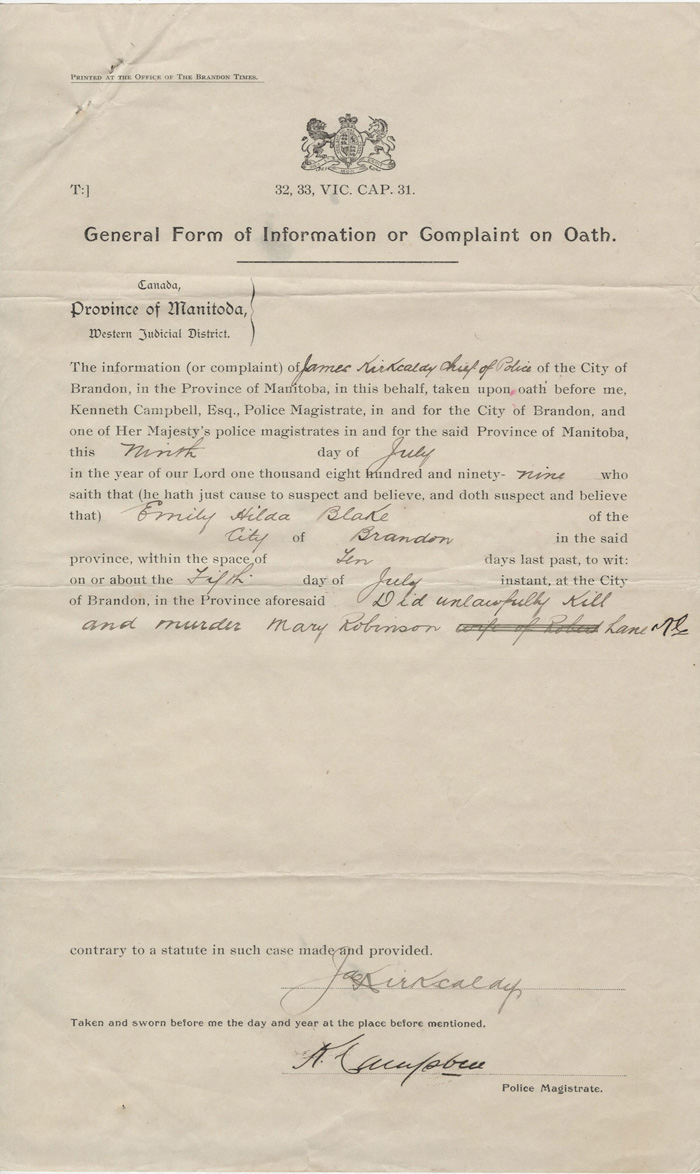 PRINTED AT THE OFFICE OF THE BRANDON TIMES.
T:] 32, 33, VIC. CAP. 31.
General Form of Information or Complaint on Oath.
Canada,
Province of Manitoba,
Western Judicial District.
The information (or complaint) of James Kirkcaldy Chief of Police of the City of
Brandon, in the Province of Manitoba, in this behalf, taken upon oath before me,
Kenneth Campbell, Esq., Police Magistrate, in and for the City of Brandon, and
one of Her Majesty's police magistrates in and for the said Province of Manitoba,
this Ninth day of July
in the year of our Lord one thousand eight hundred and ninety- nine who
saith that (he hath just cause to suspect and believe, and doth suspect and believe
that) Emily Hilda Blake of the
City of Brandon in the said
province, within the space of Ten days last past, to wit:
on or about the Fifth day of July instant, at the City
of Brandon, in the Province aforesaid Did unlawfully Kill
and murder Mary Robinson wife of Robert Lane
contrary to a statute in such case made and provided.
Jas Kirkcaldy
Taken and sworn before me the day and year at the place before mentioned.
K. Campbell
Police Magistrate.